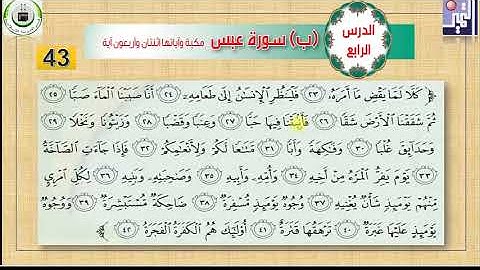 الدرس
الرابع
(ب) سورة عبس مكية وآياتها اثنتان وأربعون آية
43
﴿ كَلَّا لَمَّا يَقْضِ مَا أَمَرَهُۥ ٢٣ فَلْيَنظُرِ الْإِنسَٰنُ إِلَىٰ طَعَامِهِۦٓ ٢٤ أَنَّا صَبَبْنَا الْمَآءَ صَبًّا ٢٥
ثُمَّ شَقَقْنَا الْأَرْضَ شَقًّا ٢٦ فَأَنۢبَتْنَا فِيهَا حَبًّا ٢٧ وَعِنَبًا وَقَضْبًا ٢٨ وَزَيْتُونًا وَنَخْلًا ٢٩
وَحَدَآئِقَ غُلْبًا ٣٠ وَفَٰكِهَةً وَأَبًّا ٣١ مَّتَٰعًا لَّكُمْ وَلِأَنْعَٰمِكُمْ ٣٢ فَإِذَا جَآءَتِ الصَّآخَّةُ
٣٣ يَوْمَ يَفِرُّ الْمَرْءُ مِنْ أَخِيهِ ٣٤ وَأُمِّهِۦ وَأَبِيهِ ٣٥ وَصَٰحِبَتِهِۦ وَبَنِيهِ ٣٦ لِكُلِّ امْرِئٍ
مِّنْهُمْ يَوْمَئِذٍ شَأْنٌ يُغْنِيهِ ٣٧ وُجُوهٌ يَوْمَئِذٍ مُّسْفِرَةٌ ٣٨ ضَاحِكَةٌ مُّسْتَبْشِرَةٌ ٣٩ وَوُجُوهٌ
يَوْمَئِذٍ عَلَيْهَا غَبَرَةٌ ٤٠ تَرْهَقُهَا قَتَرَةٌ ٤١ أُو۟لَٰٓئِكَ هُمُ الْكَفَرَةُ الْفَجَرَةُ ٤٢